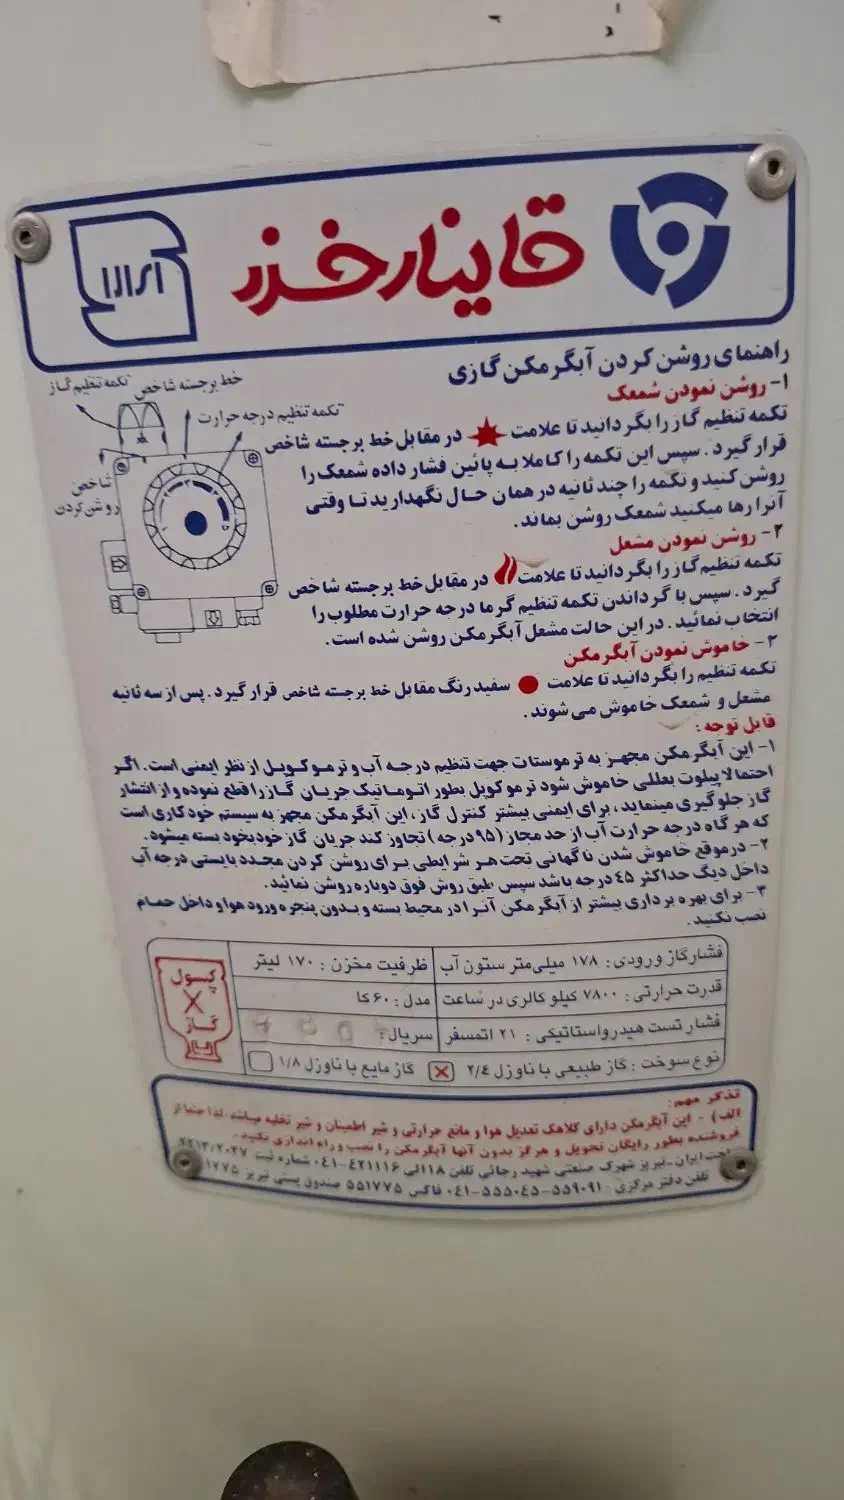 قاینار خزر
راهنمای روشن کردن آبگرمکن گازی
۱- روشن نمودن شمعک
تکمه تنظیم گاز را بگردانید تا علامت در مقابل خط برجسته شاخص
قرار گیرد. سپس این تکمه را کاملا به پائین فشار داده شمعک را
روشن کنید و تکمه را چند ثانیه در همان حال نگهدارید تا وقتی
آنرا رها میکنید شمعک روشن بماند.
۲- روشن نمودن مشعل
تکمه تنظیم گاز را بگردانید تا علامت در مقابل خط برجسته شاخص
گیرد. سپس با گرداندن تکمه تنظیم گرما درجه حرارت مطلوب را
انتخاب نمائید. در این حالت مشعل آبگرمکن روشن شده است.
۲- خاموش نمودن آبگرمکن
تکمه تنظیم را بگردانید تا علامت سفید رنگ مقابل خط برجسته شاخص قرار گیرد. پس از سه ثانیه
مشعل و شمعک خاموش می شوند.
خط برجسته شاخص
تکمه تنظیم گاز
تکمه تنظیم درجه حرارت
شاخص
روشن کردن
قابل توجه:
۱- این آبگرمکن مجهز به ترموستات جهت تنظیم درجه آب و ترموکوپل از نظر ایمنی است. اگر
احتمالا پیلوت بعللی خاموش شود ترموکوپل بطور اتوماتیک جریان گاز را قطع نموده و از انتشار
گاز جلوگیری مینماید، برای ایمنی بیشتر کنترل گاز، این آبگرمکن مجهز به سیستم خودکاری است
که هر گاه درجه حرارت آب از حد مجاز (۹۵ درجه) تجاوز کند جریان گاز خودبخود بسته میشود.
۲- در موقع خاموش شدن ناگهانی تحت هر شرایطی برای روشن کردن مجدد بایستی درجه آب
داخل دیگ حداکثر ۴۵ درجه باشد سپس طبق روش فوق دوباره روشن نمائید.
۳- برای بهره برداری بیشتر از آبگرمکن آنرا در محیط بسته و بدون پنجره ورود هوا و داخل حمام
نصب نکنید.
فشار گاز ورودی: ۱۷۸ میلی‌متر ستون آب ظرفیت مخزن: ۱۷۰ لیتر
قدرت حرارتی: ۷۸۰۰ کیلو کالری در ساعت مدل: ۶۰کا
فشار تست هیدرواستاتیکی: ۲۱ اتمسفر سریال:
نوع سوخت: گاز طبیعی با ناوزل ۲/۴ گاز مایع با ناوزل ۱/۸
کپسول
گاز
تذکر مهم:
الف) - این آبگرمکن دارای کلاهک تعدیل هوا و مانع حرارتی و شیر اطمینان و شیر تخلیه میباشد. لذا حتما از
فروشنده بطور رایگان تحویل و هرگز بدون آنها آبگرمکن را نصب و راه اندازی نکنید.
ایران-تبریز شهرک صنعتی شهید رجائی تلفن ۱۱۸الی ۴۲۱۱۱۶-۰۴۱ شماره ثبت
تلفن دفتر مرکزی ۵۵۹۰۹۱-۵۵۵۰۴۵-۰۴۱ فاکس ۵۵۱۷۷۵ صندوق پستی تبریز